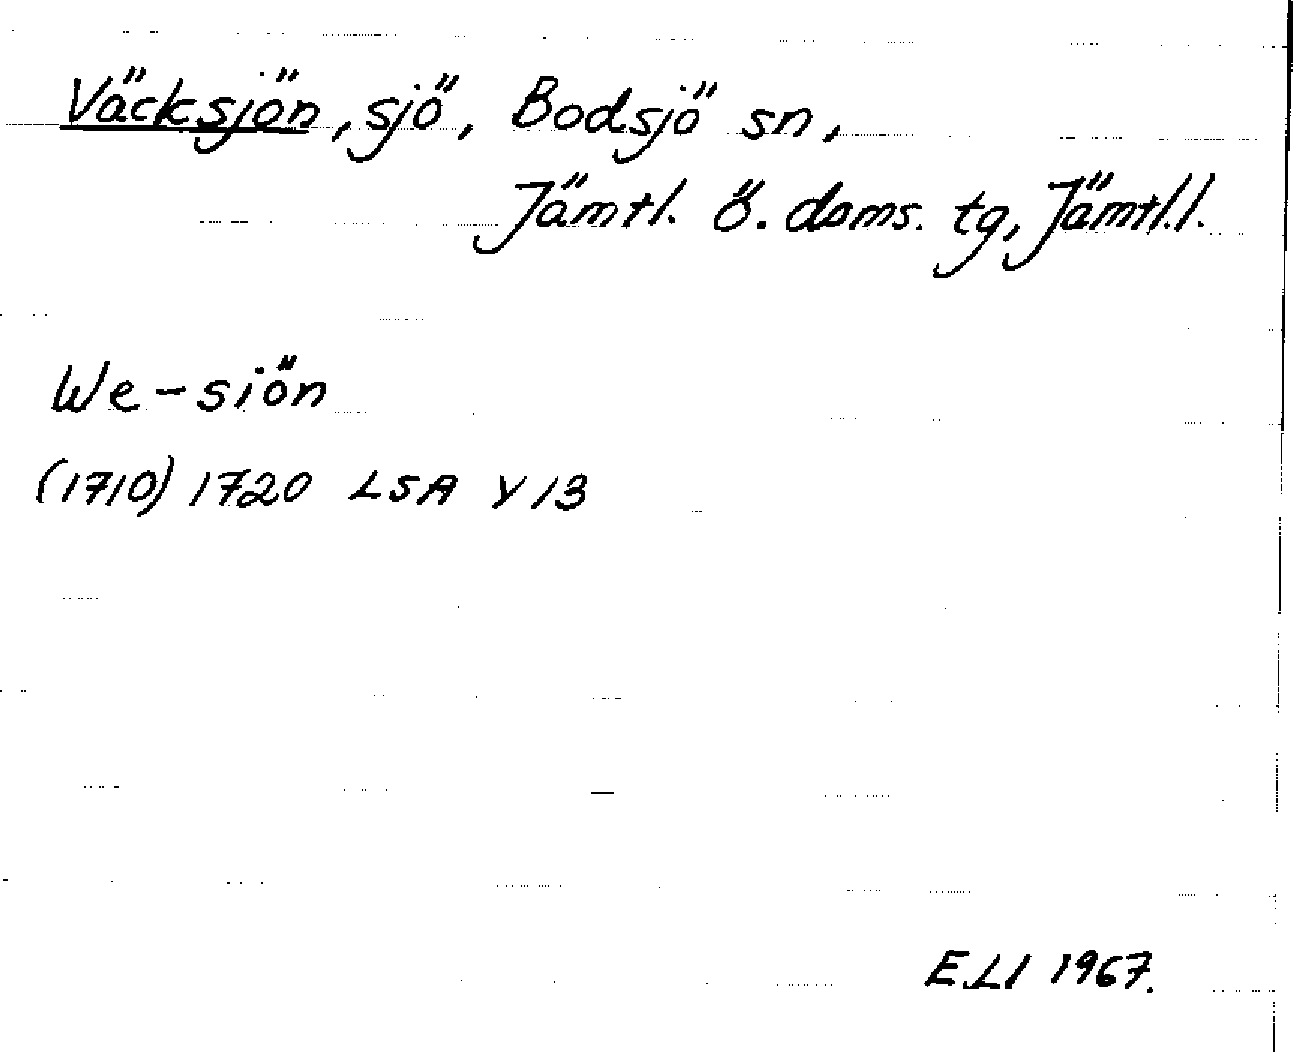 Väcksjön, sjö, Bodsjö sn,
Jämtl. ö. doms. tg, Jämtl.l.
We-siön
(1710) 1720 LSA Y 13
ELI 1967.